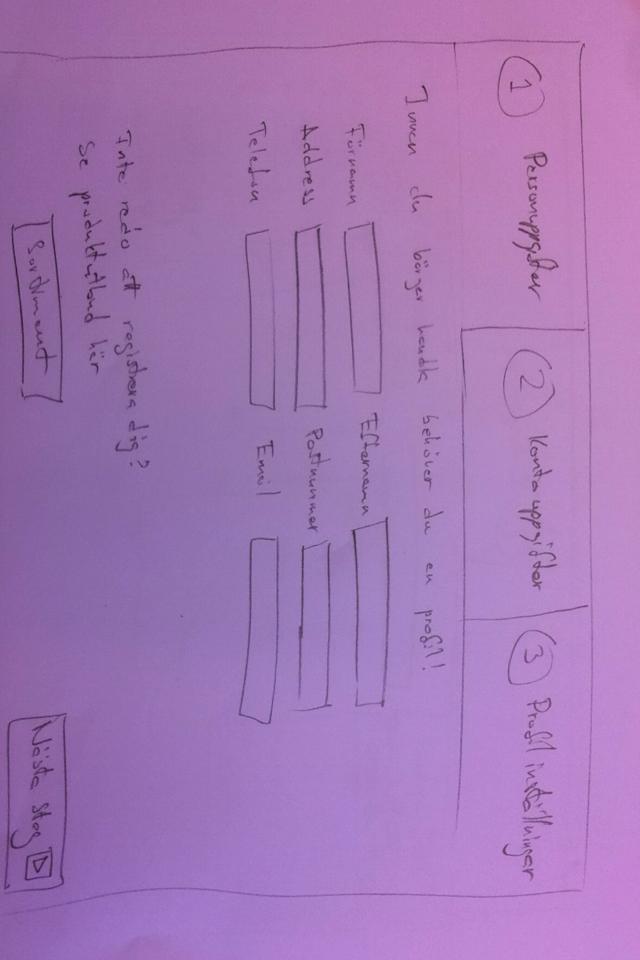 1 Personuppgifter
2 Kontouppgifter
3 Profil inställningar
Innan du börjar handla behöver du en profil!
Förnamn
Efternamn
Address
Postnummer
Telefon
Email
Inte redo att registrera dig?
Se produktutbud här
Sortiment
Nästa steg